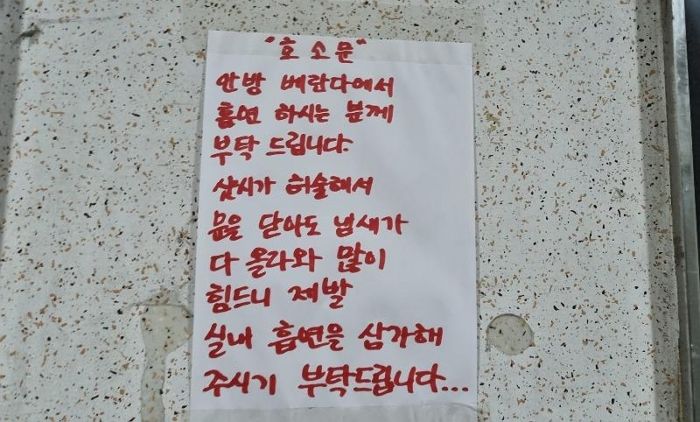 "호소문"
안방 베란다에서
흡연 하시는 분께
부탁 드립니다.
샷시가 허술해서
문을 닫아도 냄새가
다 올라와 많이
힘드니 제발
실내 흡연을 삼가해
주시기 부탁드립니다...